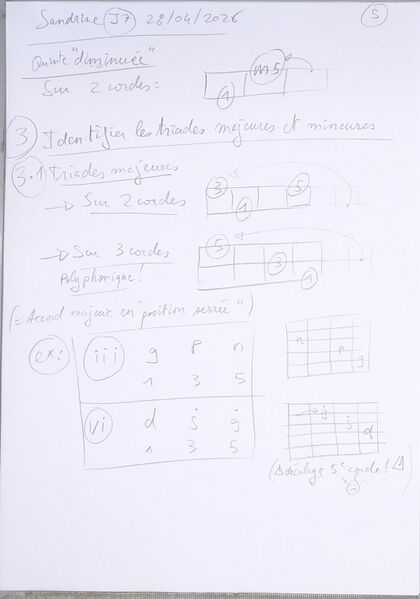 Sandrine J7 28/04/2026
5
Quinte "diminuée"
Sur 2 cordes :
1 m5
3 Identifier les triades majeures et mineures
3.1 Triades majeures
→ Sur 2 cordes
3 1 5
→ Sur 3 cordes
Polyphonique !
5 3 1
(= Accord majeur en "position serrée")
ex :
iii g p n
1 3 5
n p g
vi d j g
1 3 5
g j d
(⚠ décalage 5e corde ! ⚠)